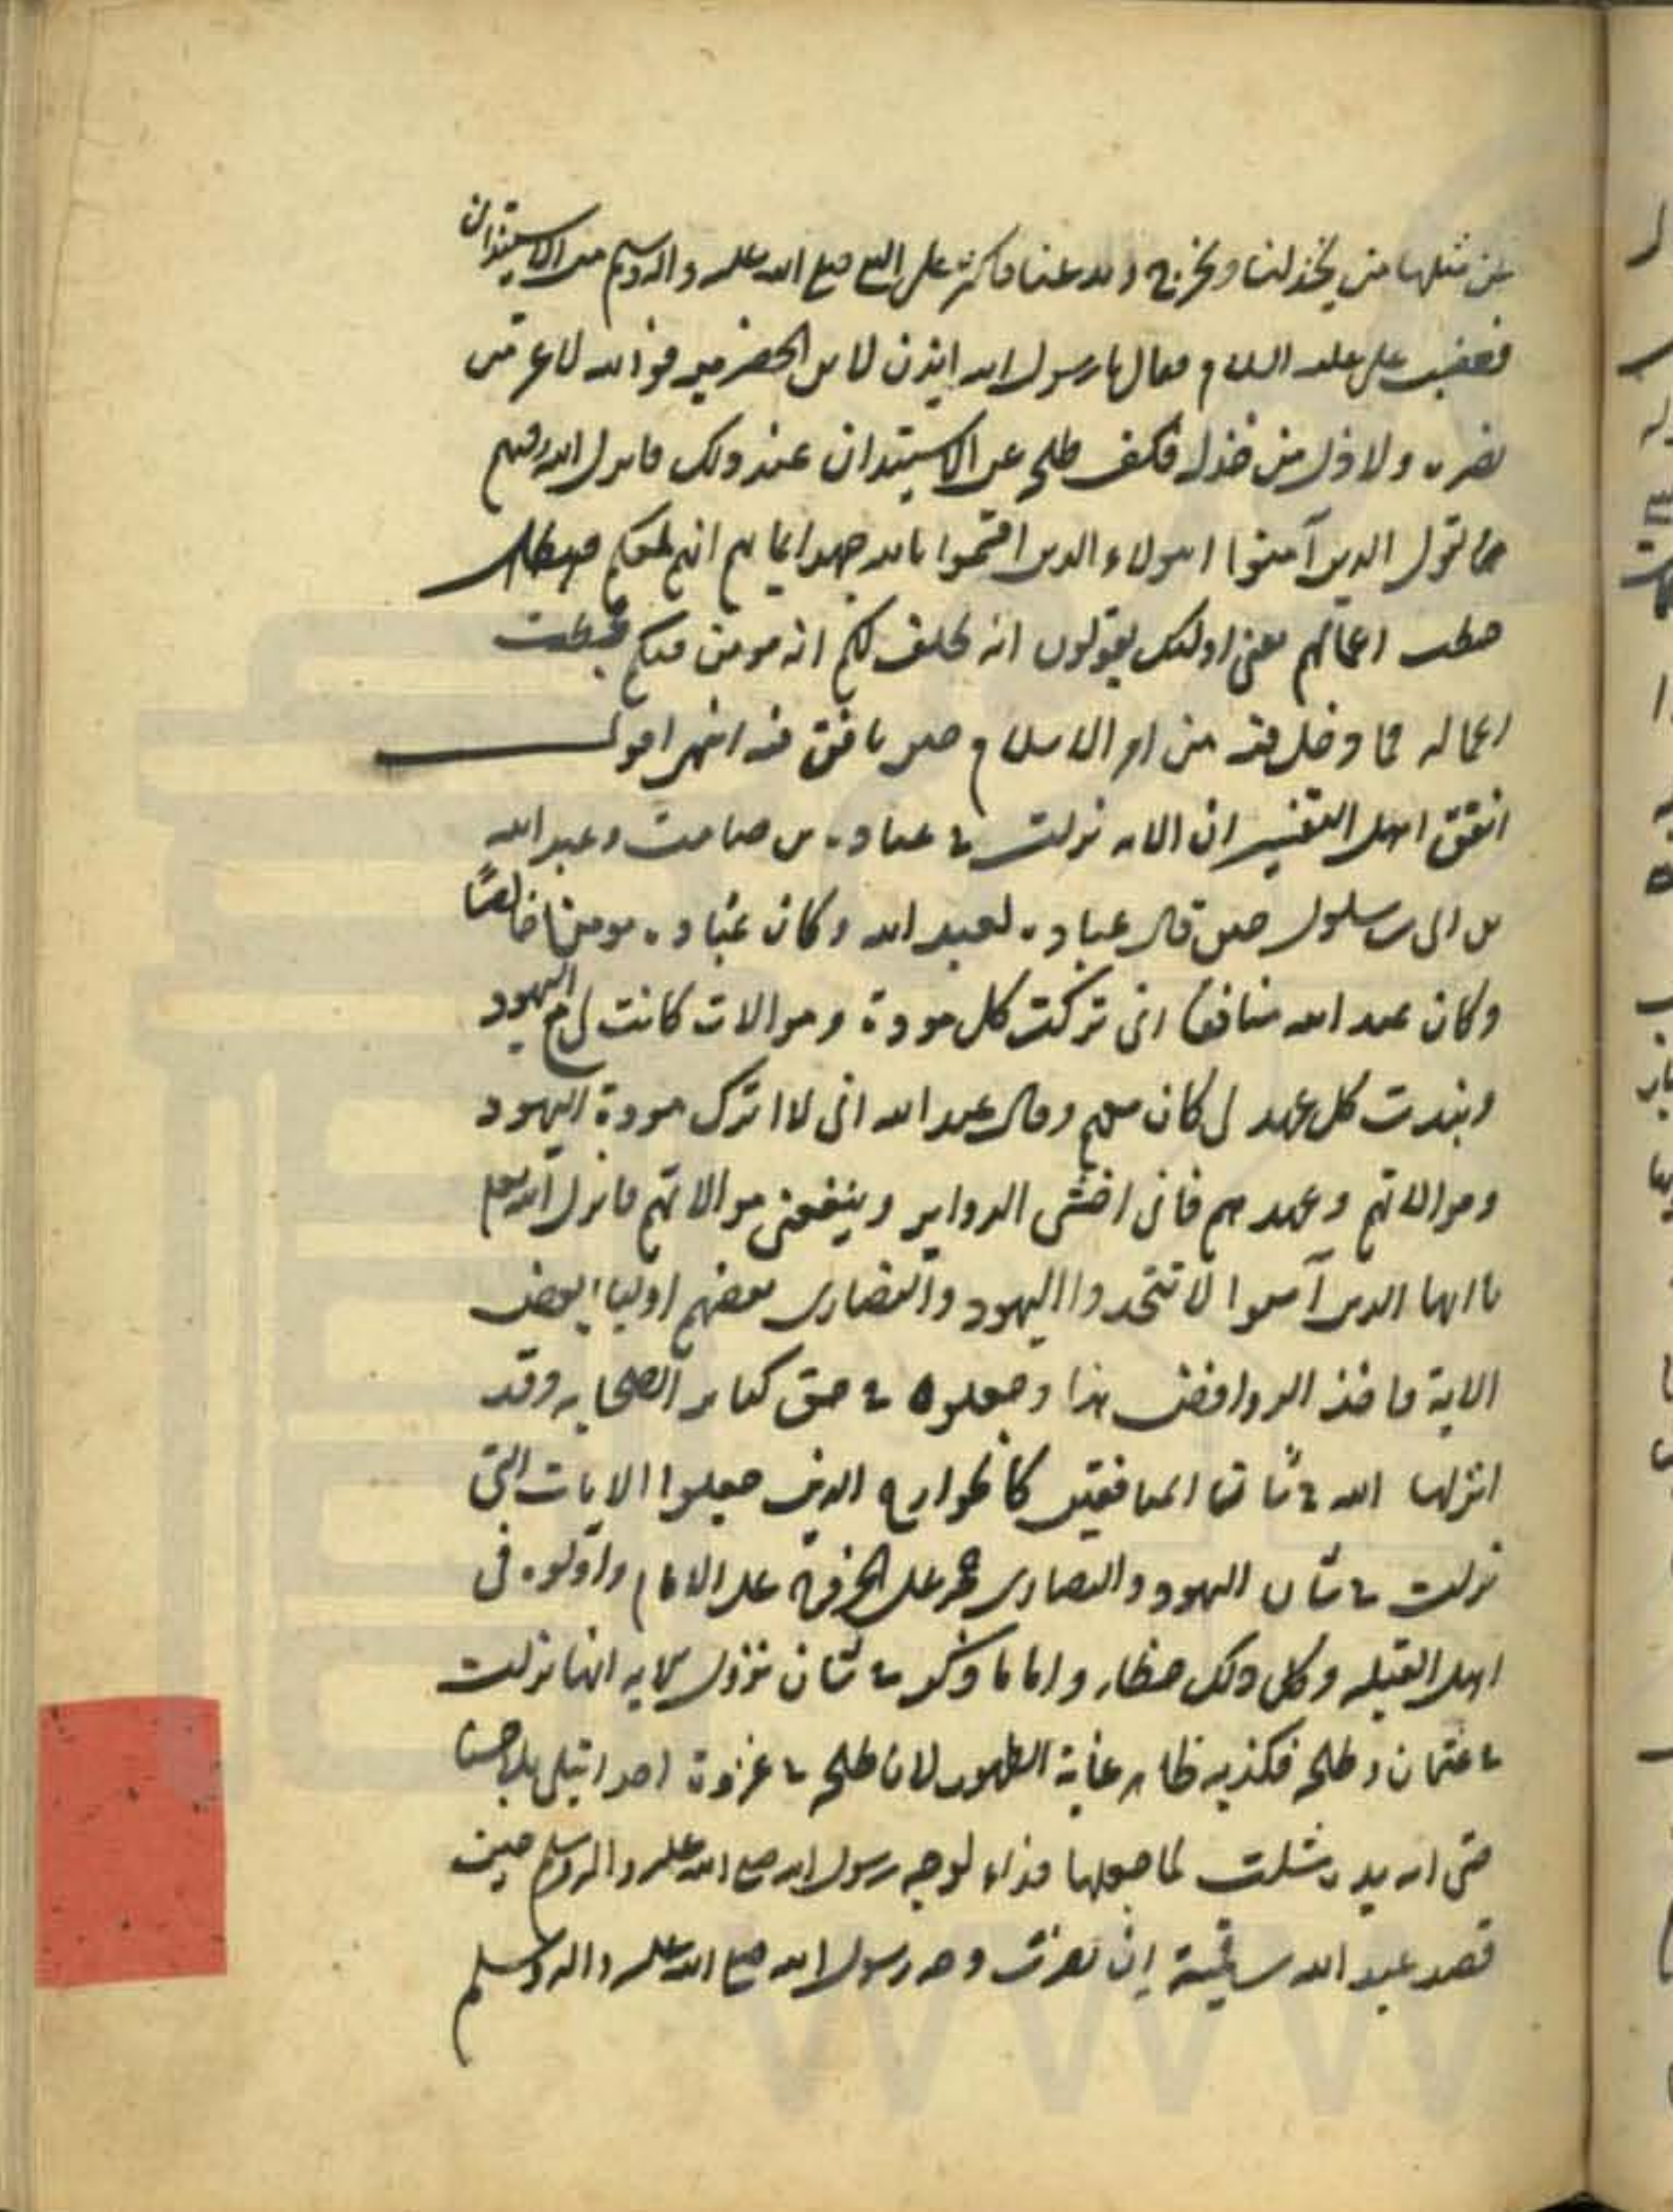 مثلها من يخذلنا ويخرج ولد عنا فاكثر على النبي صلع الله عليه واله وسلم من الاستيذان
فغضب على عليه السلام فقال يا رسول الله ايذن لابن الحضرميه فوالله لا عز من
نصره ولا ذل من خذله فكف طلحه عن الاستيذان عند ذلك فانزل الله فيهم
يقول الذين آمنوا اهولاء الذين اقسموا بالله جهد ايمانهم انهم لمعكم
حبطت اعمالهم يعنى اولئك يقولون انه يحلف لكم انه مومن معكم فحبطت
اعماله بما دخل فيه من امر الاسلام حين نافق فيه انتهى اقول
اتفق اهل التفسير ان الايه نزلت في عباده بن صامت وعبد الله
بن ابى بن سلول حين قال عباده لعبد الله وكان عباده مومنا خالصًا
وكان عبد الله منافقا انى تركت كل مودة وموالات كانت لى مع اليهود
ونبذت كل عهد لى كان معهم وقال عبد الله انى لا اترك مودة اليهود
وموالاتهم وعهدهم فانى اخشى الدواير وينفعنى موالاتهم فانزل الله تعلى
يا ايها الذين آمنوا لا تتخذوا اليهود والنصارى بعضهم اوليا بعض
الاية فاخذ الروافض هذا وجعلوه في حق كبار الصحابه وقد
انزلها الله في شان المنافقين كالخوارج الذين جعلوا الايات التى
نزلت في شان اليهود والنصارى على الامام واولوه فى
اهل القبله وكل ذلك خطاء واما ما ذكر في شان نزول الايه انها نزلت
في عثمان وطلحه فكذبه ظاهر غاية الظهور لان طلحه في غزوة احد ابتلى بلاء حسنا
حتى ان يده شلت لما جعلها فداء لوجه رسول الله صلع الله عليه واله وسلم حين
قصد عبد الله بن قمية ان يضرب وجه رسول الله صلع الله عليه واله وسلم